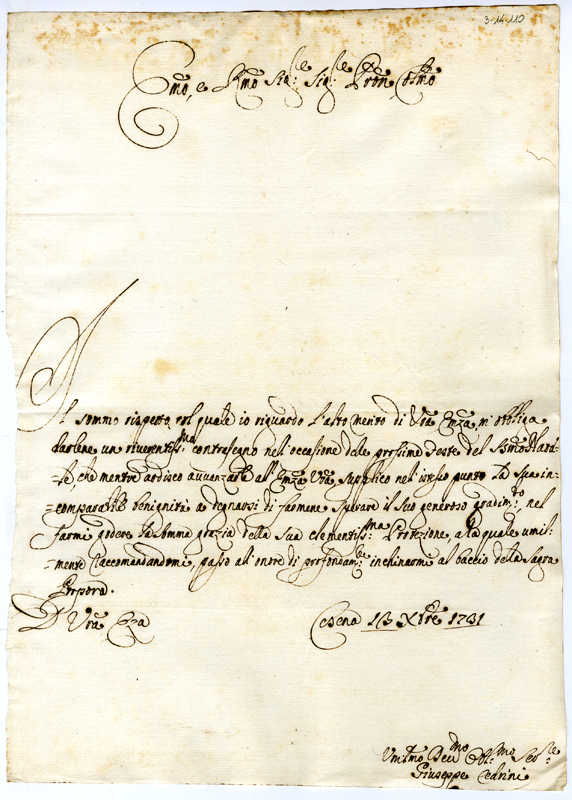 3-14-110
Emo, e Rmo Sig.re Sig.re Pron Colmo
Il sommo rispetto, col quale io riguardo l'alto merito di Vra Emza, m'obbliga
darlene un riverentiss.mo contrasegno nell'occasione delle prossime Feste del Smo Nata-
-le, che mentre ardisco avvanzarle all'Emza Vra, supplico nell'istesso punto la sua in-
-comparabile benignità a degnarsi di farmene sperare il suo generoso gradim.to, nel
farmi godere la somma grazia della Sua clementiss.ma Protezione, alla quale umil-
-mente raccomandandomi, passo all'onore di profondam.te inchinarmi al baccio della Sagra
Porpora.
D. Vra Emza
Cesena 13 Xbre 1731
Umilmo Dev.mo Obl.mo Ser.re
Giuseppe Cedrini